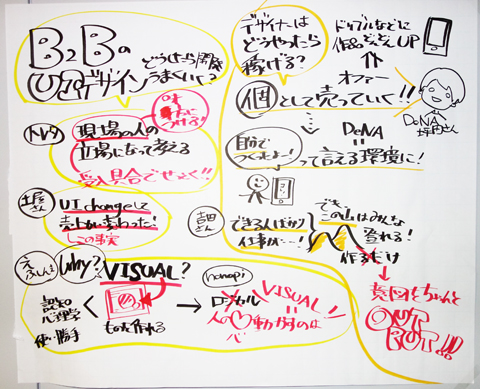 B2Bの
UIデザイン
どうしたら開発
うまくいく?
トレタ
現場の人の
立場になって考える
受入具合でせっく!!
土屋
さん
UI changeして
売上が変わった!
この事実
Why?
VISUAL?
認知
心理学
使い勝手
ものを作れる
→
nanapi
ロジカル
VISUAL
人の♡動かすのは
心
デザイナーは
どうやったら
稼げる?
ドリブルなどに
作品どんどんUP
オファー
個として売っていく!!
DeNA
坪田さん
DeNA
自分で
つくれよー!
って言える環境に!
吉田
さん
できる人ばかり
仕事が…!
でも
この山はみんな
登れる!
作るだけ
意図をちゃんと
OUT
PUT!!